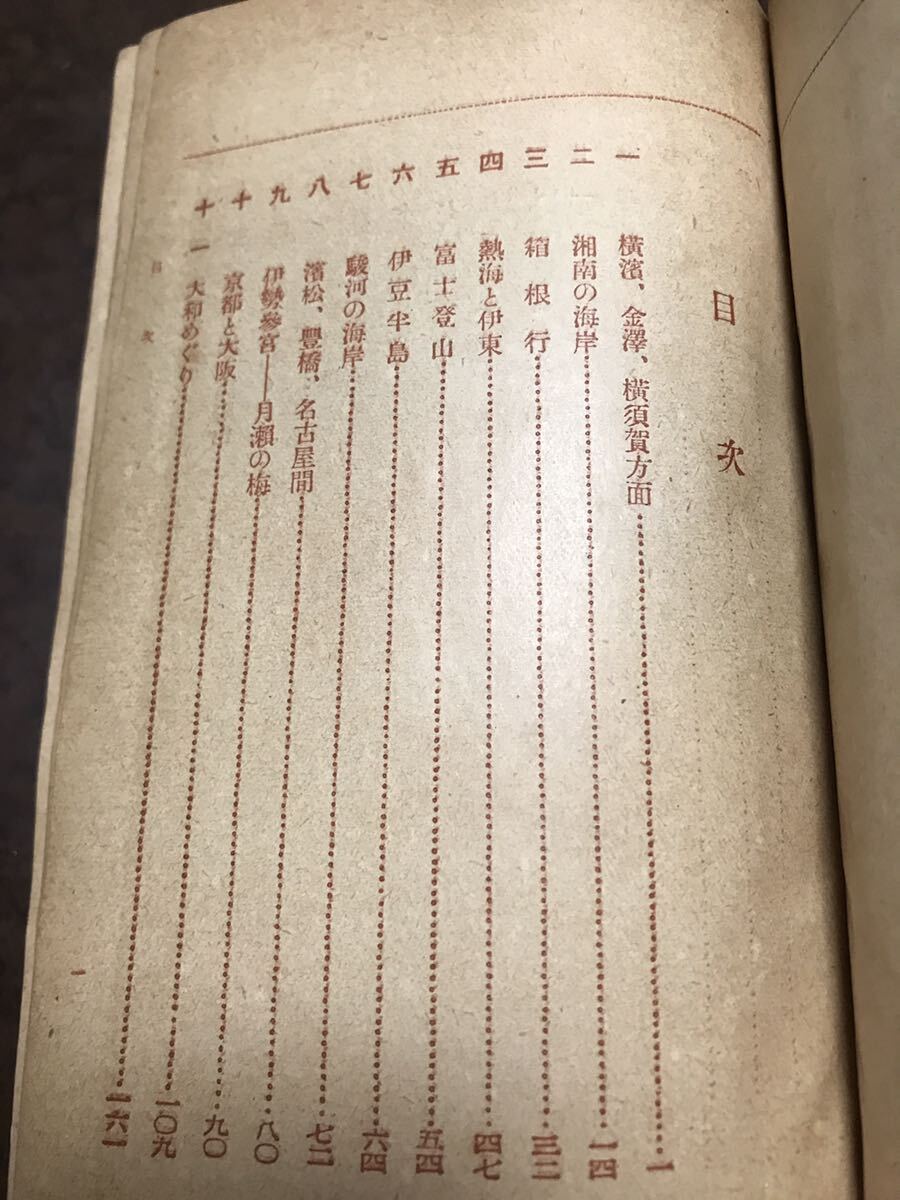 目次
一 橫濱、金澤、橫須賀方面……一
二 湘南の海岸……一四
三 箱根行……三二
四 熱海と伊東……四七
五 富士登山……五四
六 伊豆半島……六四
七 駿河の海岸……七二
八 濱松、豐橋、名古屋間……八〇
九 伊勢參宮――月瀨の梅……九〇
十 京都と大阪……一〇九
十一 大和めぐり……一六一
目次
一